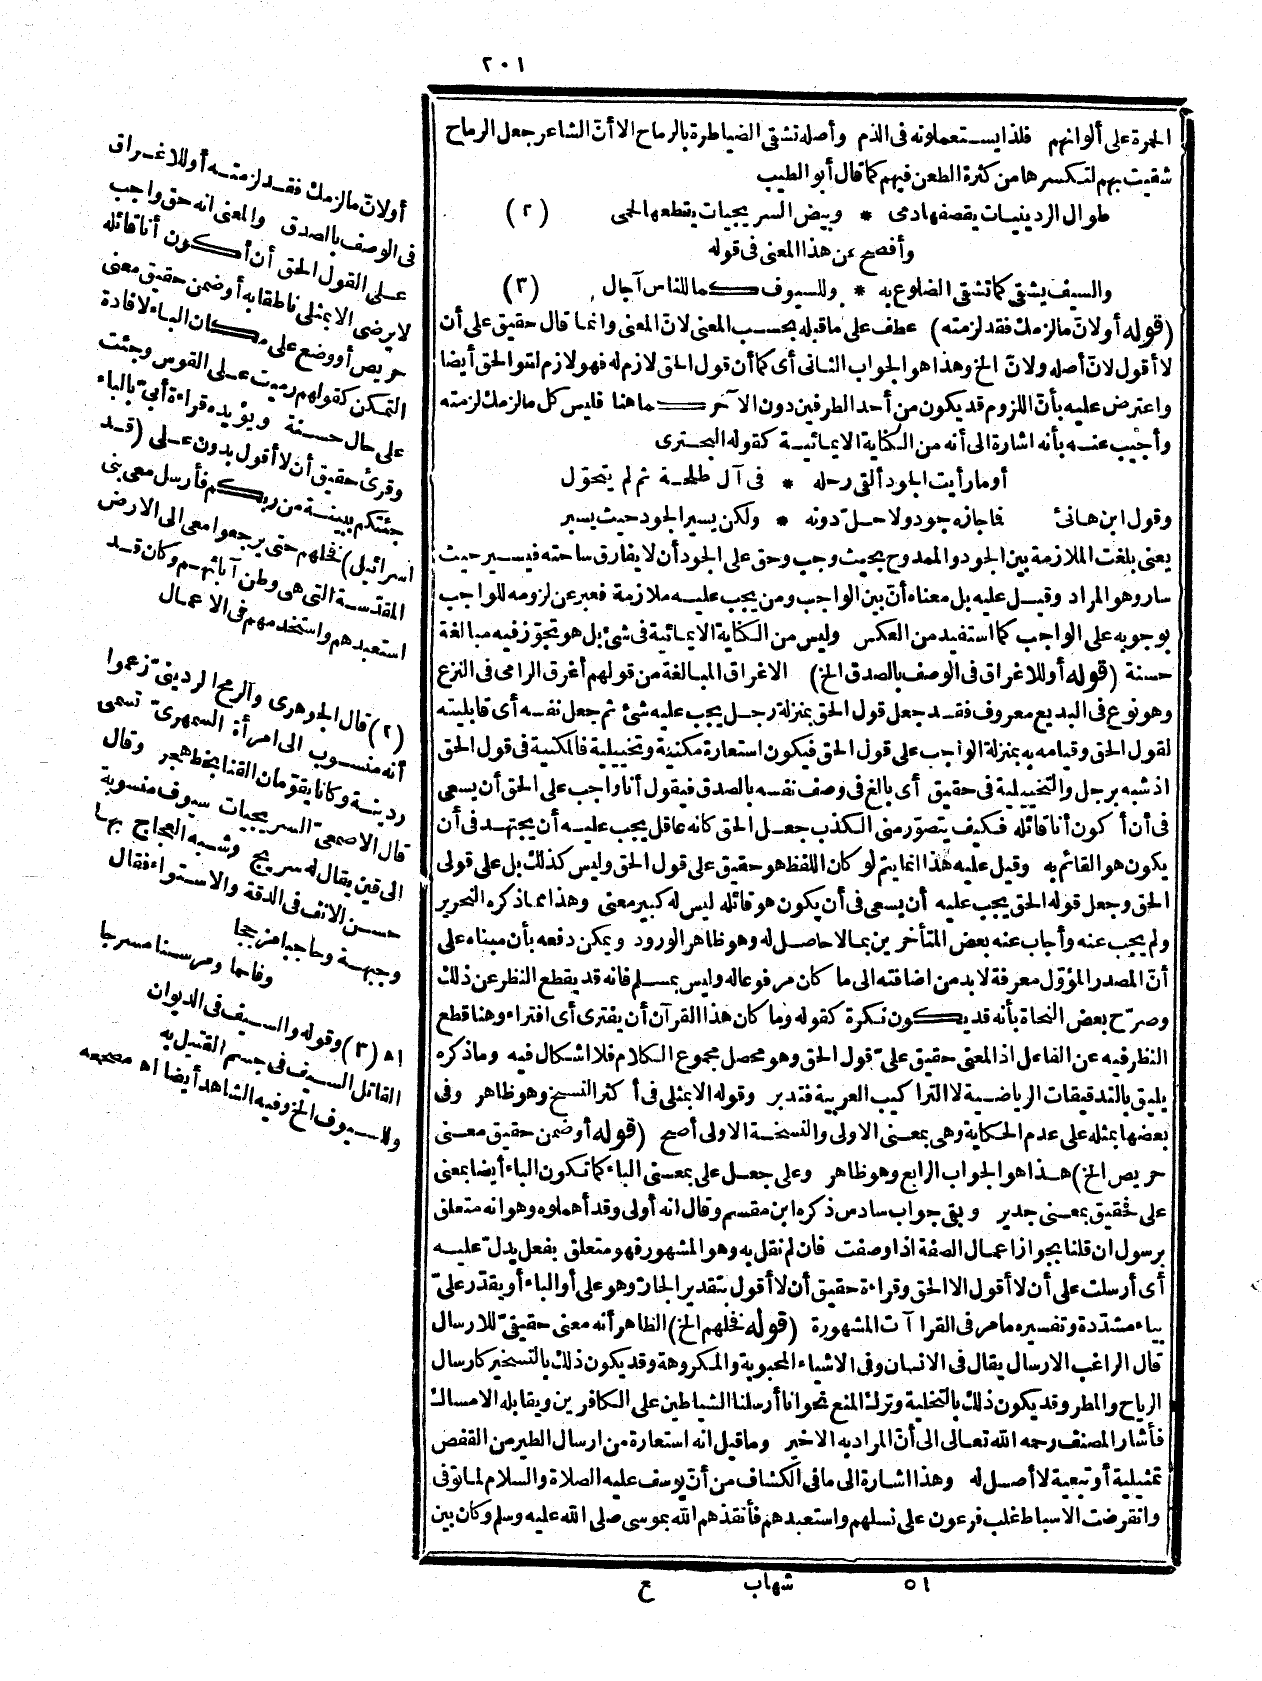 ٢٠١
الحمرة على ألوانهم فلذا يستعملونه فى الذم وأصله تشقى الضياطرة بالرماح الا أنّ الشاعر جعل الرماح
شقيت بهم لتكسرها من كثرة الطعن فيهم كما قال أبو الطيب
طوال الردينيات يقصفها دمى * وبيض السريجيات يقطعها لحمى (٢)
وأفصح عن هذا المعنى فى قوله
والسيف يشقى كما تشقى الضلوع به * وللسيوف كما للناس آجال (٣)
(قوله أولانّ ما لزمك فقد لزمته) عطف على ما قبله بحسب المعنى لانّ المعنى وانما قال حقيق على أن
لا أقول لانّ أصله ولانّ الخ وهذا هو الجواب الثانى أى كما أن قول الحق لازم له فهو لازم لتوالحق أيضا
واعترض عليه بأنّ اللزوم قد يكون من أحد الطرفين دون الآخر كما هنا فليس كل ما لزمك لزمته
وأجيب عنه بأنه اشارة الى أنه من الكناية الايمائية كقوله البحترى
أو ما رأيت الجود ألقى رحله * فى آل طلحة ثم لم يتحوّل
وقول ابن هانئ فما جازه جود ولا حلّ دونه * ولكن يسير الجود حيث يسير
يعنى بلغت الملازمة بين الجود والممدوح بحيث وجب وحق على الجود أن لا يفارق ساحته فيسير حيث
سار وهو المراد وقيل عليه بل معناه أنّ بين الواجب ومن يجب عليه ملازمة فعبر عن لزومه للواجب
بوجوبه على الواجب كما استفيد من العكس وليس من الكناية الايمائية فى شئ بل هو تجوّز فيه مبالغة
حسنة (قوله أو للاغراق فى الوصف بالصدق الخ) الاغراق المبالغة من قولهم أغرق الرامى فى النزع
وهو نوع فى البديع معروف فقد جعل قول الحق بمنزلة رجل يجب عليه شئ ثم جعل نفسه أى قابليته
لقول الحق وقيامه به بمنزلة الواجب على قول الحق فيكون استعارة مكنية وتخييلية فالمكنية فى قول الحق
اذ شبه برجل والتخييلية فى حقيق أى بالغ فى وصف نفسه بالصدق فيقول أنا واجب على الحق أن يسعى
فى أن أكون أنا قائله فكيف يتصوّر منى الكذب جعل الحق كانه عاقل يجب عليه أن يجتهد فى أن
يكون هو القائم به وقيل عليه هذا انما يتم لو كان اللفظ هو حقيق على قول الحق وليس كذلك بل على قولى
الحق وجعل قوله الحق يجب عليه أن يسعى فى أن يكون هو قائله ليس له كبير معنى وهذا مما ذكره التحرير
ولم يجب عنه وأجاب عنه بعض المتأخرين بما لا حاصل له وهو ظاهر الورود ويمكن دفعه بأن مبناه على
أنّ المصدر المؤوّل معرفة لا بد من اضافته الى ما كان مرفوعا له وليس بمسلم فانه قد يقطع النظر عن ذلك
وصرّح بعض النحاة بأنه قد يكون نكرة كقوله وما كان هذا القرآن أن يفترى أى افتراء وهنا قطع
النظر فيه عن الفاعل اذ المعنى حقيق علىّ قول الحق وهو محصل مجموع الكلام فلا اشكال فيه وما ذكره
يليق بالتدقيقات الرياضية لا التراكيب العربية فتدبر وقوله الا بمثلى فى أكثر النسخ وهو ظاهر وفى
بعضها بمثله على عدم الحكاية وهى بمعنى الاولى والنسخة الاولى أصح (قوله أو ضمن حقيق معنى
حريص الخ) هذا هو الجواب الرابع وهو ظاهر وعلى جعل على بمعنى الباء كما تكون الباء أيضا بمعنى
على فحقيق بمعنى جدير وبقى جواب سادس ذكره ابن مقسم وقال انه أولى وقد أهملوه وهو انه متعلق
برسول ان قلنا بجواز اعمال الصفة اذا وصفت فان لم نقل به وهو المشهور فهو متعلق بفعل يدلّ عليه
أى أرسلت على أن لا أقول الا الحق وقراءة حقيق أن لا أقول بتقدير الجارّ وهو على أو الباء أو يقدّر علىّ
بياء مشدّدة وتفسيره ما مر فى القراآت المشهورة (قوله فخلهم الخ) الظاهر أنه معنى حقيقىّ للارسال
قال الراغب الارسال يقال فى الانسان وفى الاشياء المحبوبة والمكروهة وقد يكون ذلك بالتسخير كارسال
الرياح والمطر وقد يكون ذلك بالتخلية وترك المنع نحو انا أرسلنا الشياطين على الكافرين ويقابله الامساك
فأشار المصنف رحمه الله تعالى الى أنّ المراد به الاخير وما قيل انه استعارة من ارسال الطير من القفص
تمثيلية أو تبعية لا أصل له وهذا اشارة الى ما فى الكشاف من أنّ يوسف عليه الصلاة والسلام لما توفى
وانقرضت الاسباط غلب فرعون على نسلهم واستعبدهم فأنقذهم الله بموسى صلى الله عليه وسلم وكان بين
٥١ شهاب ع
أولانّ ما لزمك فقد لزمته أو للاغراق
فى الوصف بالصدق والمعنى انه حق واجب
على القول الحق أن أكون أنا قائله
لا يرضى الا بمثلى ناطقا به أو ضمن حقيق معنى
حريص أو وضع على مكان الباء لافادة
التمكن كقولهم رميت على القوس وجئت
على حال حسنة ويؤيده قراءة أبىّ بالباء
وقرئ حقيق أن لا أقول بدون على (قد
جئتكم ببينة من ربكم فأرسل معى بنى
اسرائيل) فخلهم حتى يرجعوا معى الى الارض
المقدّسة التى هى وطن آبائهم وكان قد
استعبدهم واستخدمهم فى الاعمال
(٢) قال الجوهرى والرمح الردينىّ زعموا
أنه منسوب الى امرأة السمهرىّ تسمى
ردينة وكانا يقوّمان القنا بخط هجر وقال
قال الاصمعىّ السريجيات سيوف منسوبة
الى قين يقال له سريج وشبه العجاج بها
حسن الانف فى الدقة والاستواء فقال
وجبهة وحاجبا مزججا
وفاحما ومرسنا مسرجا
اه (٣) وقوله والسيف فى الديوان
القاتل السيف فى جسم القتيل به
وللسيوف الخ وفيه الشاهد أيضا اه مصححه